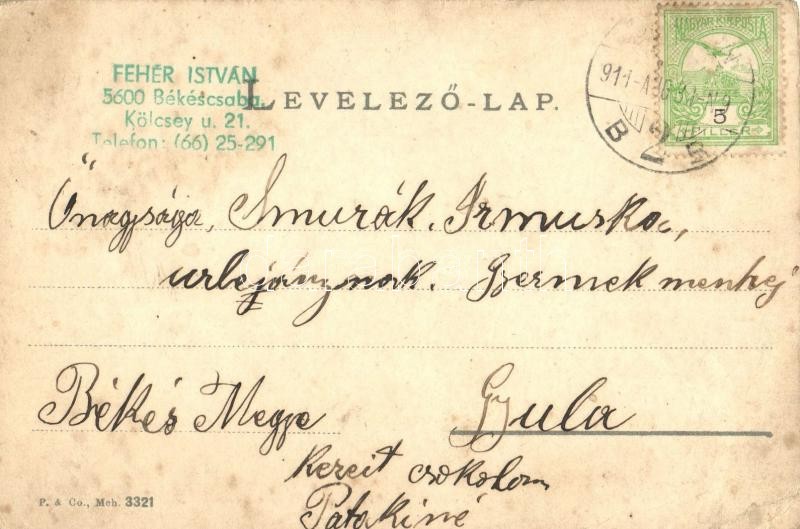 FEHÉR ISTVÁN
5600 Békéscsaba,
Kölcsey u. 21.
Telefon: (66) 25-291
LEVELEZŐ-LAP.
MAGYAR KIR. POSTA
5
FILLÉR
Őnagysága, Smurák. Irmuska,
urlejánynak. Gyermek menhej
Békés Megye
Gyula
kezeit csokolom
Patakiné
P. & Co., Meh. 3321